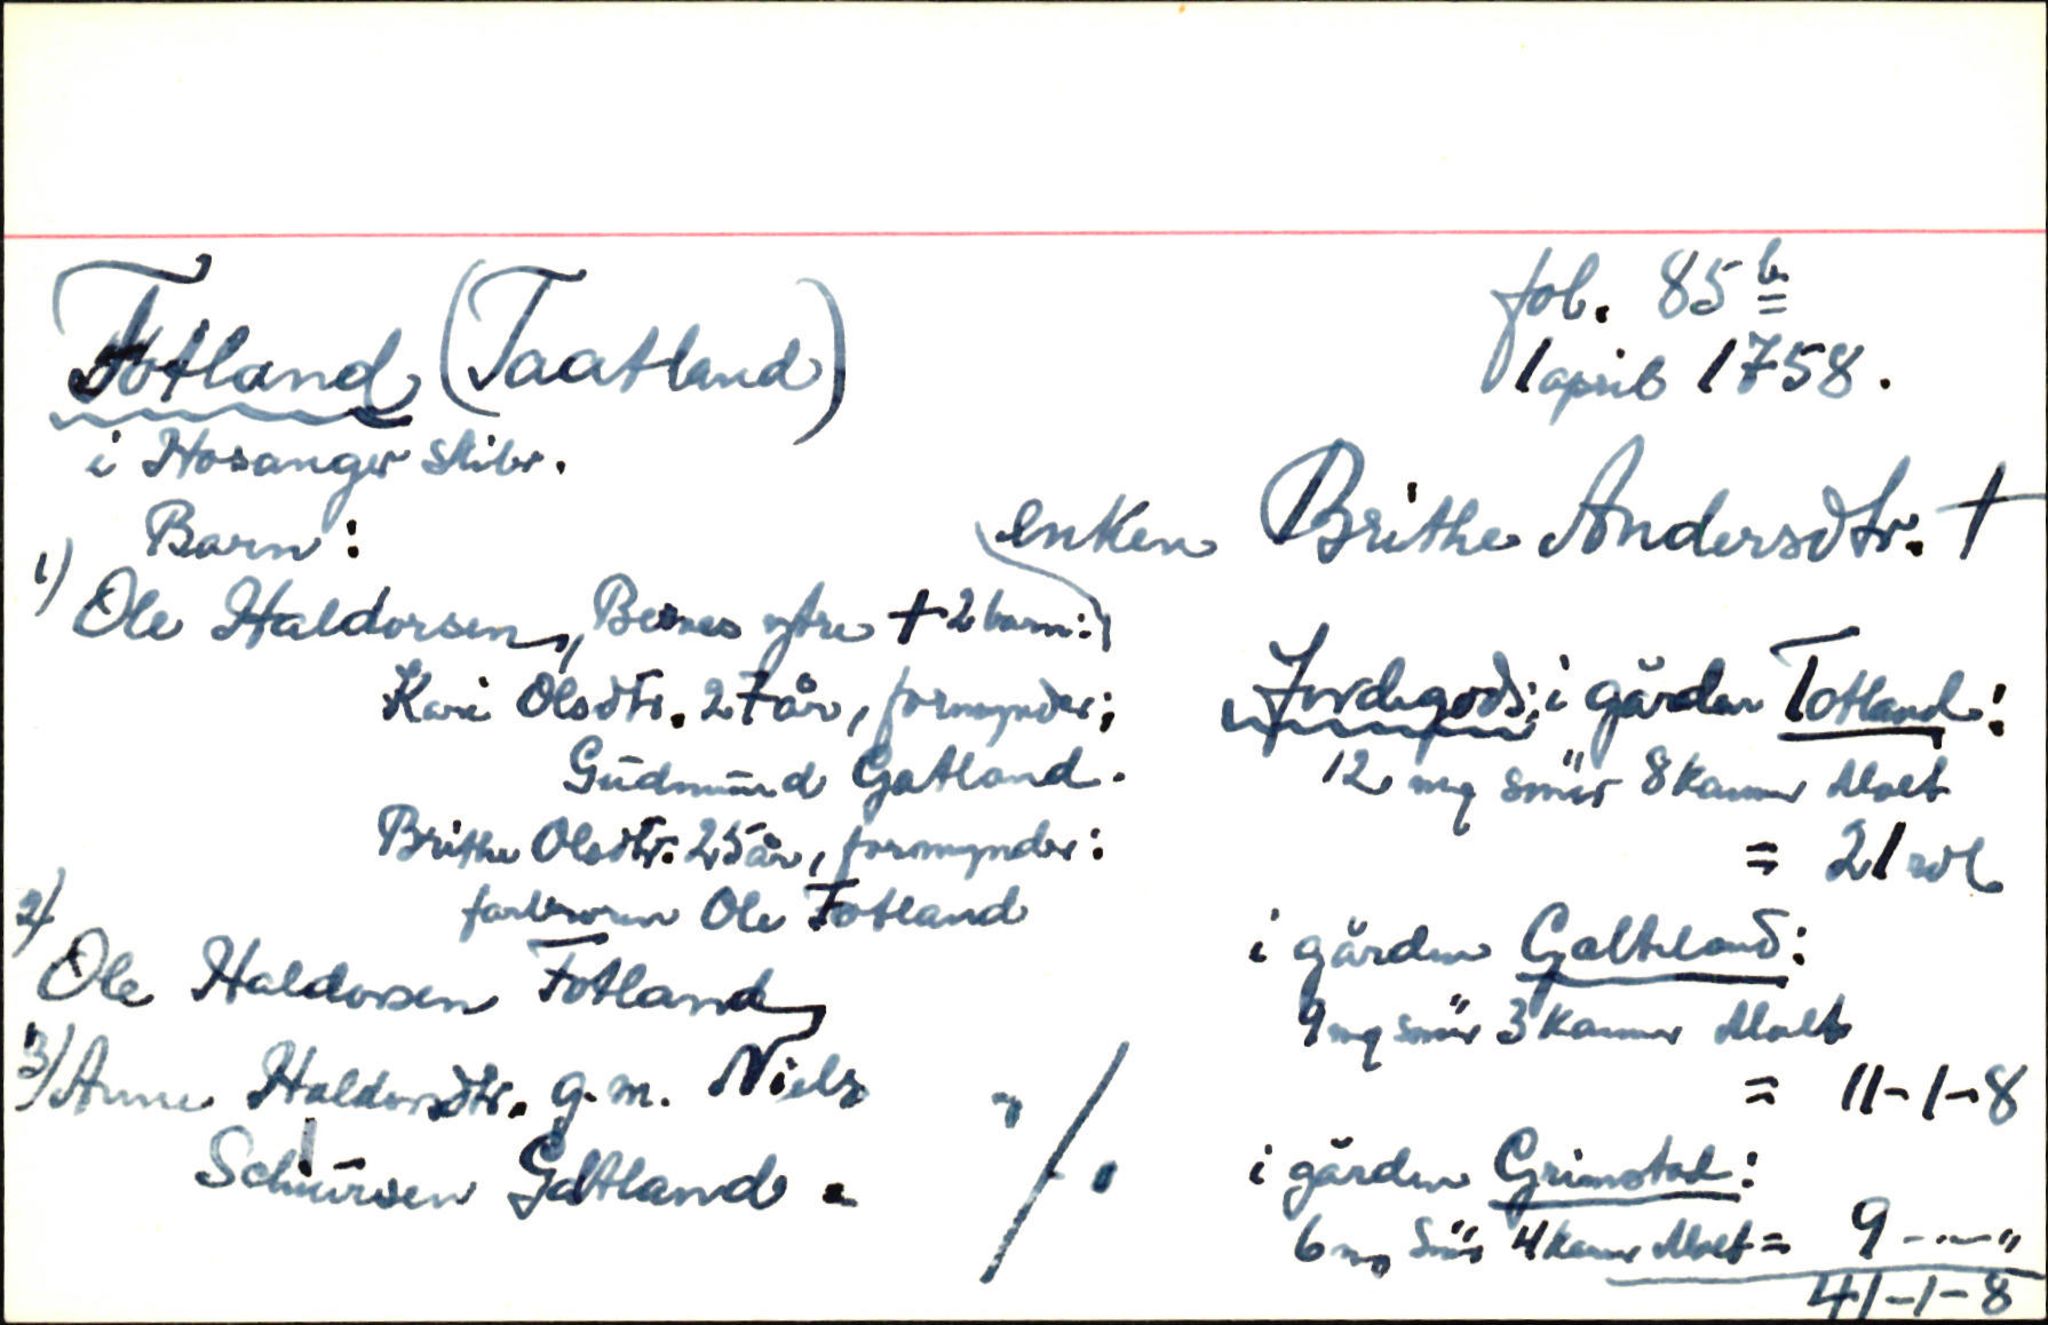 Totland (Taatland)
fol. 85 b
1 april 1758.
i Hosanger skibr.
enken Brithe Andersdtr. †
Barn:
1) Ole Haldorsen, Bernes ytre † 2 barn:
Kari Olsdtr. 27 år, formynder;
Gudmund Gatland.
Brithe Olsdtr. 25 år, formynder:
farbroren Ole Totland
2) Ole Haldorsen Totland
3) Anne Haldorsdtr. g.m. Niels
Schiursen Galtland.
Jordegods: i gården Totland:
12 mg smör 8 kanner Malt
= 21 rdl
i gården Galteland:
9 mg smör 3 kanner Malt
= 11-1-8
i gården Grimstad:
6 mg Smör 4 kanner Malt = 9 - " - "
41-1-8
"/.